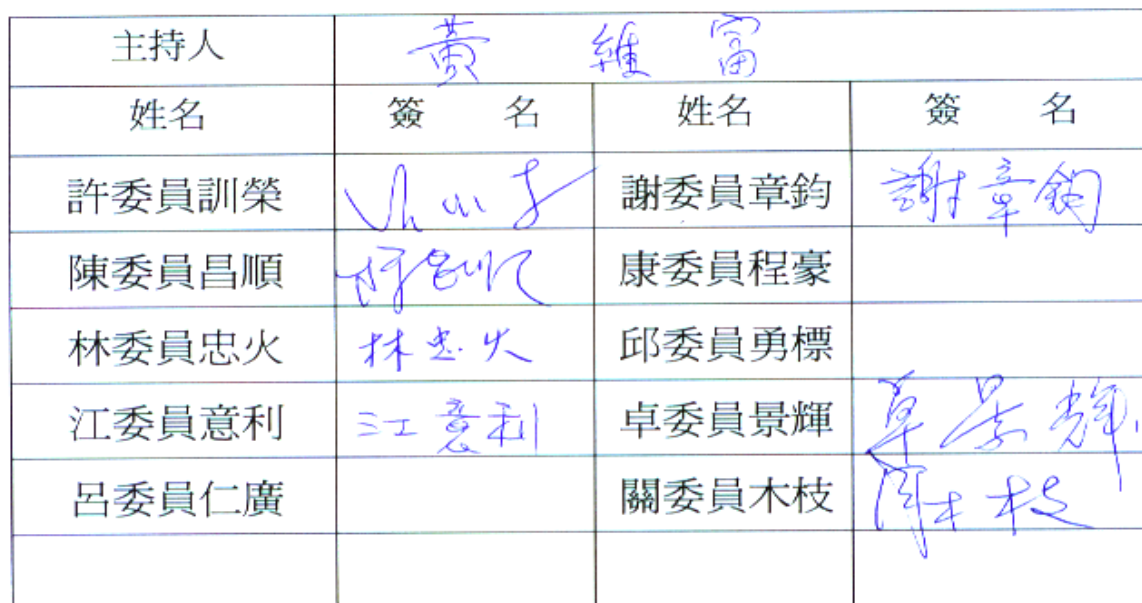 主持人 黃維富
姓名 簽名 姓名 簽名
許委員訓榮 謝委員章鈞 謝章鈞
陳委員昌順 陳昌順 康委員程豪
林委員忠火 林忠火 邱委員勇標
江委員意利 江意利 卓委員景輝 卓景輝
呂委員仁廣 關委員木枝 關木枝